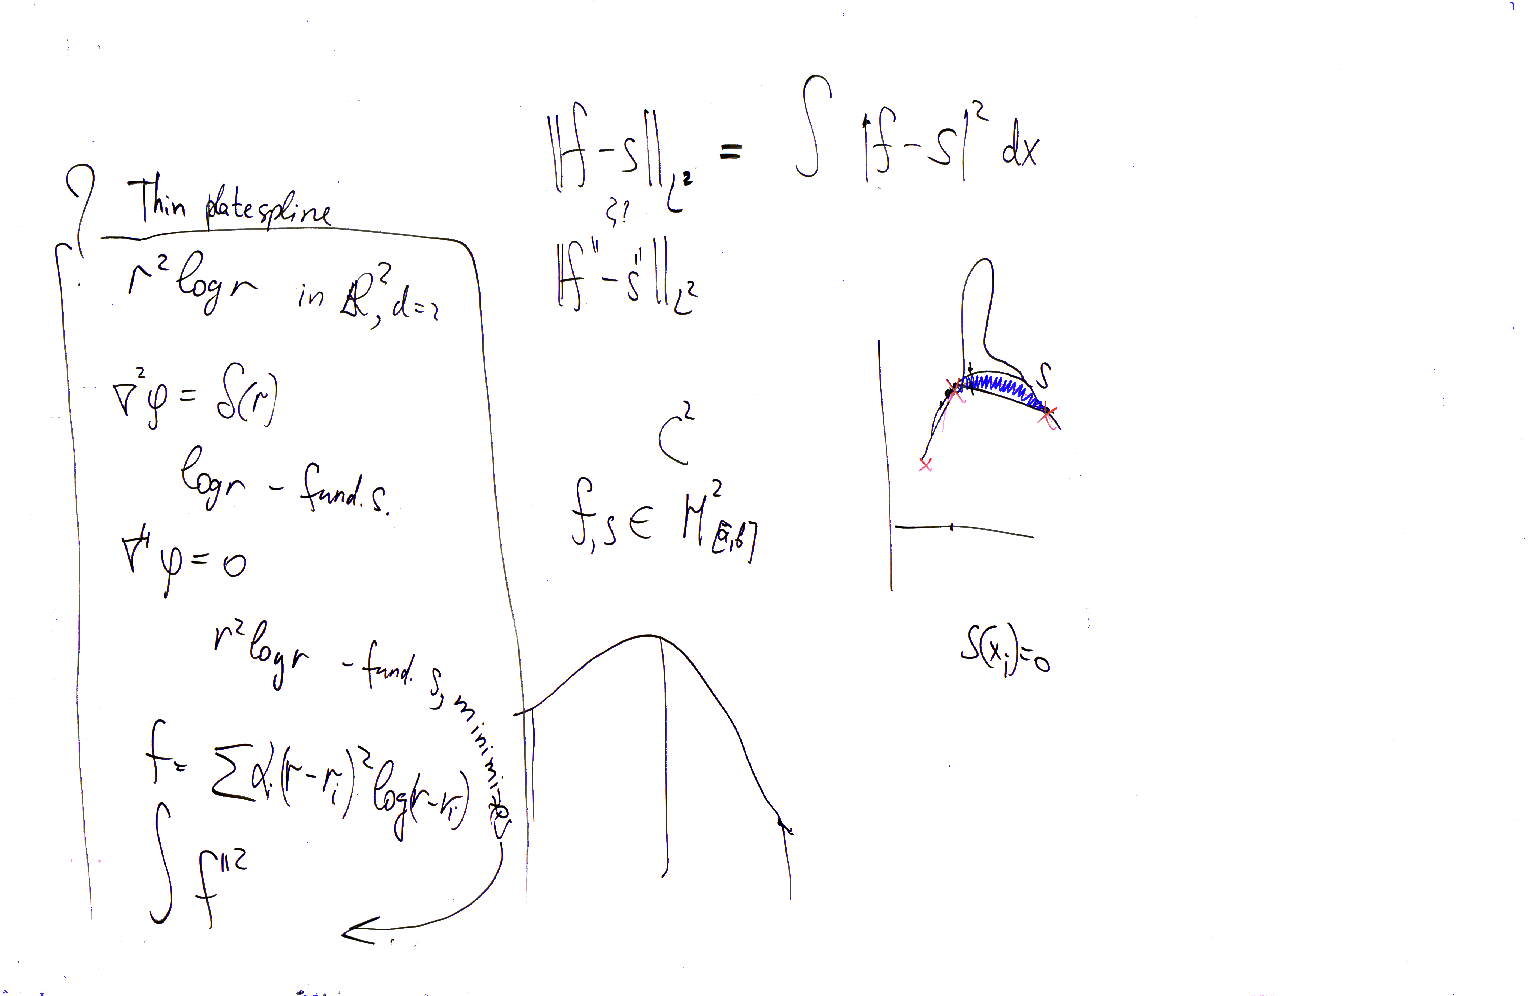 ?
Thin plate spline
r² log r in ℝ², d=2
∇²φ = δ(r)
log r - fund. s.
∇⁴φ = 0
r² log r - fund. s, minimize
f = Σ αᵢ(r-rᵢ)² log(r-rᵢ)
∫ f''²
||f - s||_L² = ∫ |f - s|² dx
??
||f'' - s''||_L²
C²
f, s ∈ H²[a,b]
s
S(xᵢ)=0